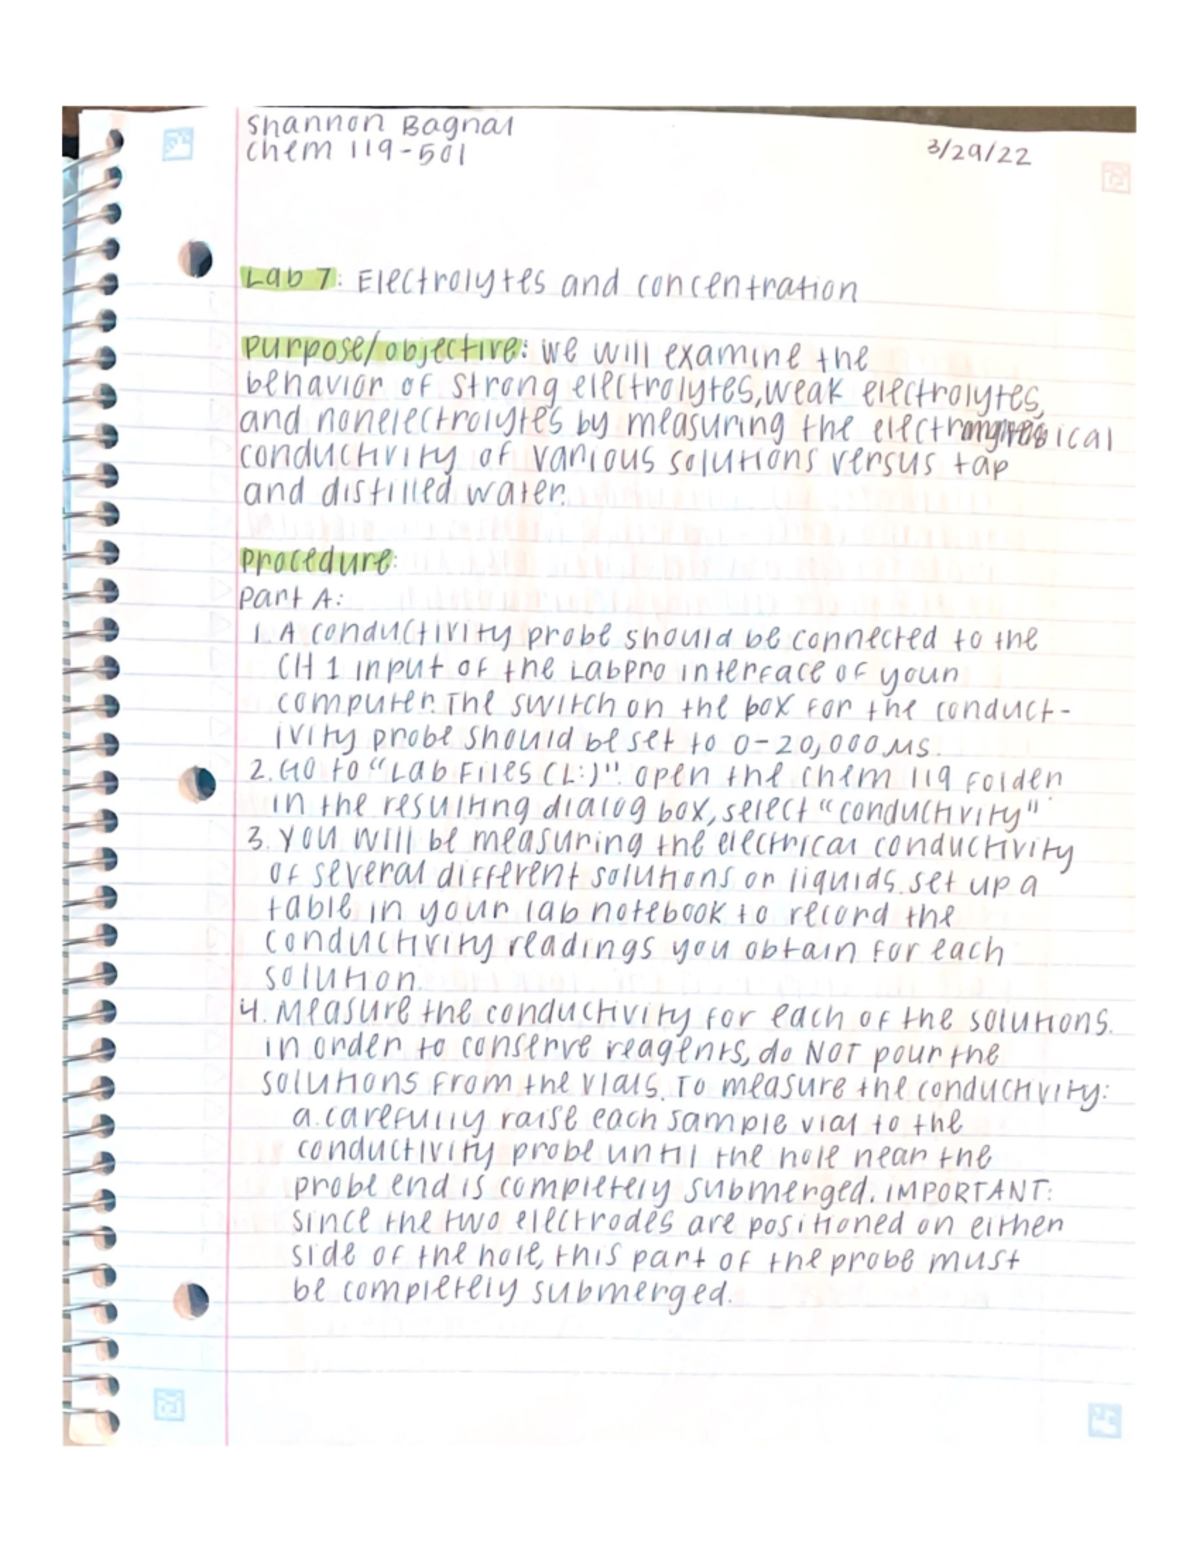 Shannon Bagnal
Chem 119-501
3/29/22
Lab 7: Electrolytes and concentration
purpose/objective: we will examine the
behavior of strong electrolytes, weak electrolytes,
and nonelectrolytes by measuring the electrical
conductivity of various solutions versus tap
and distilled water.
procedure:
part A:
1. A conductivity probe should be connected to the
CH 1 input of the LabPro interface of your
computer. The switch on the box for the conduct-
ivity probe should be set to 0-20,000 µs.
2. Go to "Lab Files (L:)". open the chem 119 Folder
in the resulting dialog box, select "conductivity"
3. You will be measuring the electrical conductivity
of several different solutions or liquids. set up a
table in your lab notebook to record the
conductivity readings you obtain for each
solution.
4. Measure the conductivity for each of the solutions.
in order to conserve reagents, do NOT pour the
solutions from the vials. To measure the conductivity:
a. carefully raise each sample vial to the
conductivity probe until the hole near the
probe end is completely submerged. IMPORTANT:
since the two electrodes are positioned on either
side of the hole, this part of the probe must
be completely submerged.